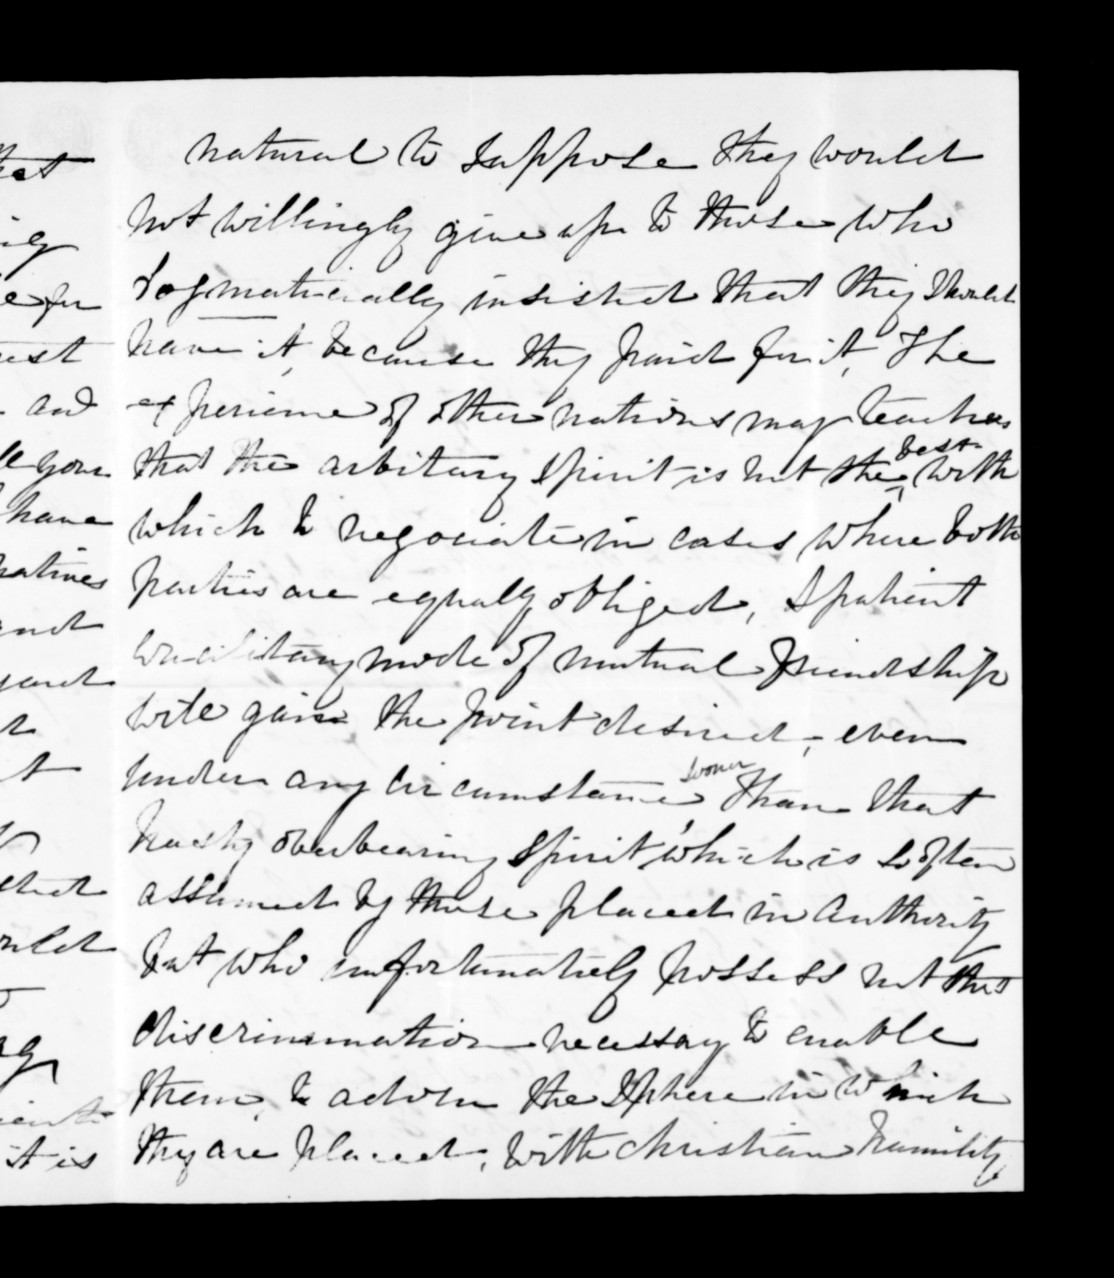 natural to suppose they would
not willingly give up to those who
dogmaticially insisted that they should
have it, because they paid for it, The
experience of other nations may teach us
that the arbitary spirit is not the best with
which to negociate in cases where both
parties are equally obliged, A patient
conciliitary mode of mutual friendship
will gain the point desired, even
under any circumstance sooner than that
hasty overbearing spirit, which is so often
assumed by those placed in authority
but who unfortunately possess not that
discrimination necessay to enable
them, to adorn the sphere in which
they are placed, with christian humility
that
for
and
your
have
natives
it is